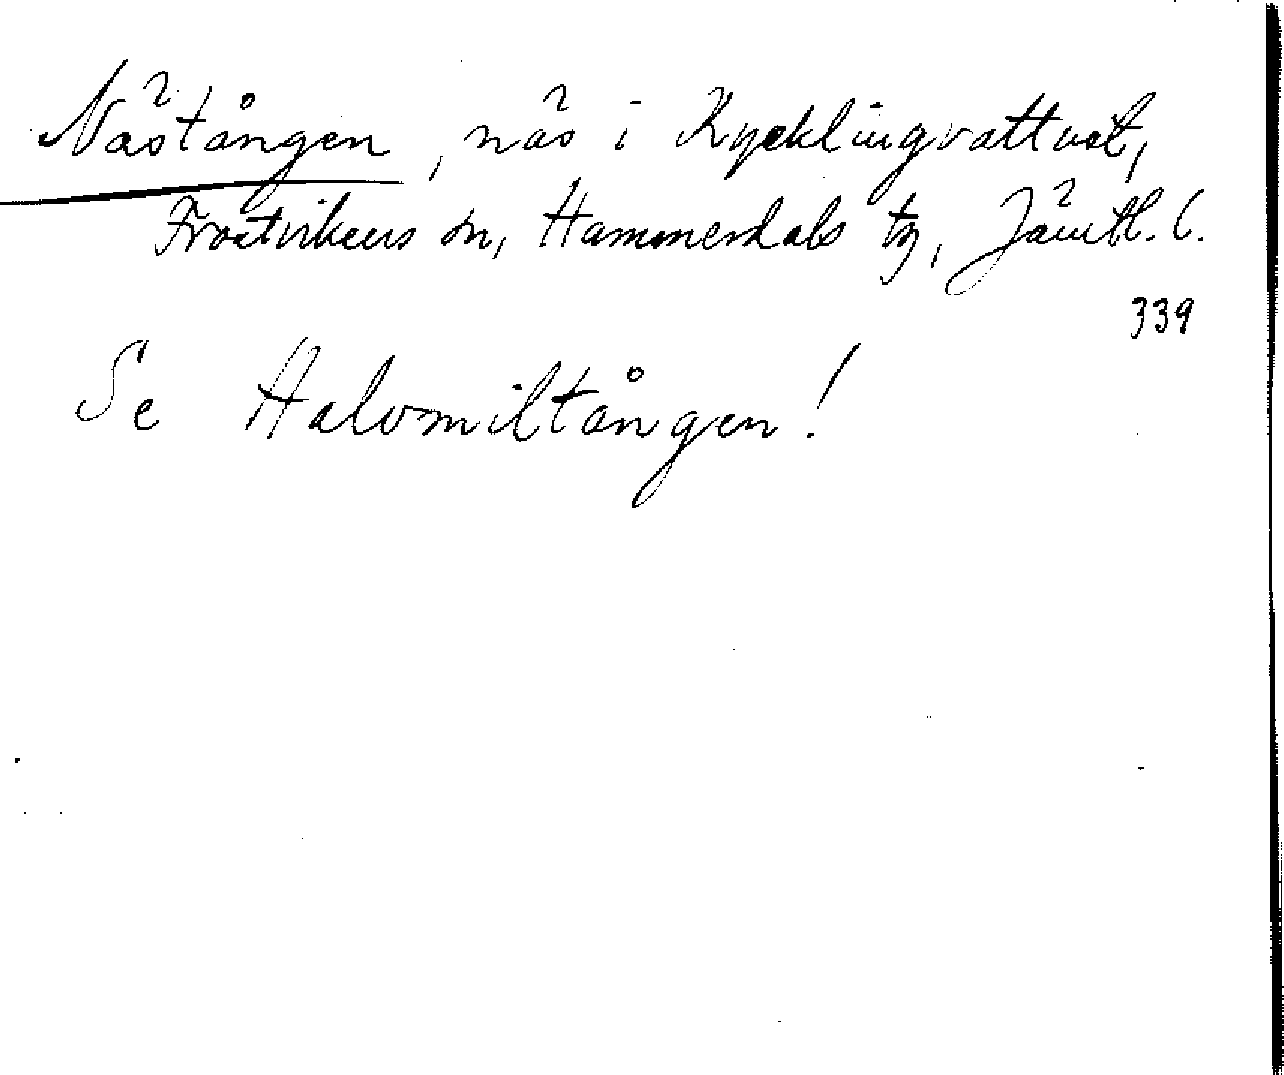 Nästången, näs i Kycklingvattnet,
Frostvikens sn, Hammerdals tg, Jämtl. l.
339
Se Halvmiltången!